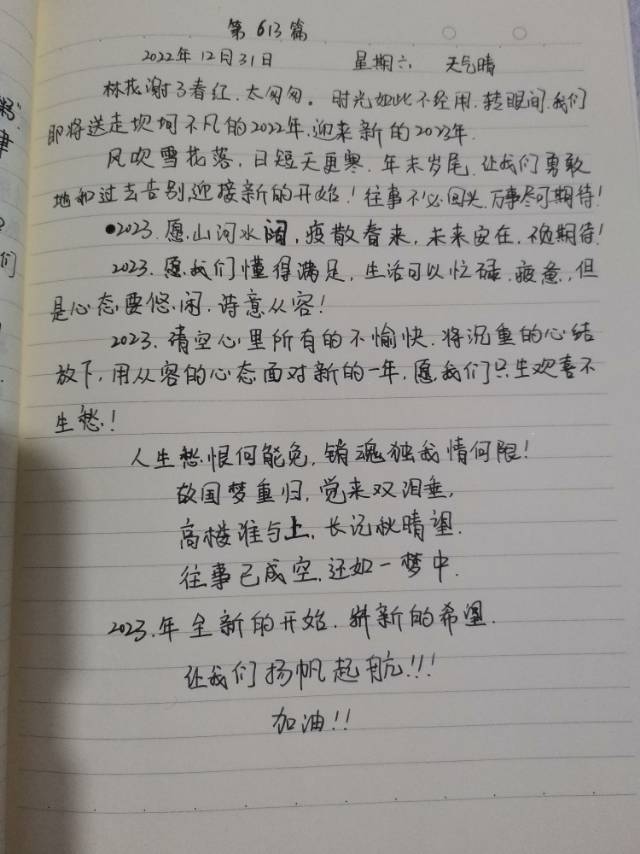 第613篇
2022年12月31日 星期六 天气晴
林花谢了春红,太匆匆。时光如此不经用,转眼间,我们
即将送走坎坷不凡的2022年,迎来新的2023年.
风吹雪花落,日短天更寒,年末岁尾,让我们勇敢
地和过去告别,迎接新的开始!往事不必回头,万事尽可期待!
•2023.愿山河水阔,疫散春来,未来安在,不负期待!
2023.愿我们懂得满足,生活可以忙碌,疲惫,但
是心态要悠闲,诗意从容!
2023.清空心里所有的不愉快.将沉重的心结
放下,用从容的心态面对新的一年,愿我们只生欢喜不
生愁!
人生愁恨何能免,销魂独我情何限!
故国梦重归,觉来双泪垂,
高楼谁与上,长记秋晴望.
往事已成空,还如一梦中.
2023.年全新的开始.崭新的希望.
让我们扬帆起航!!!
加油!!
们